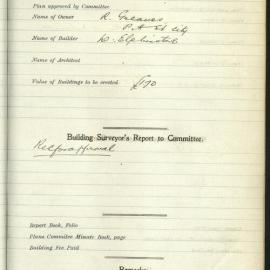 Plan approved by Committee
Name of Owner R. Greaves
P.A. St City
Name of Builder W. Elphinstone
Name of Architect
Value of Buildings to be erected £170
Building Surveyor's Report to Committee.
Rec for approval
Report Book, Folio
Plans Committee Minute Book, page
Building Fee Paid
Remarks